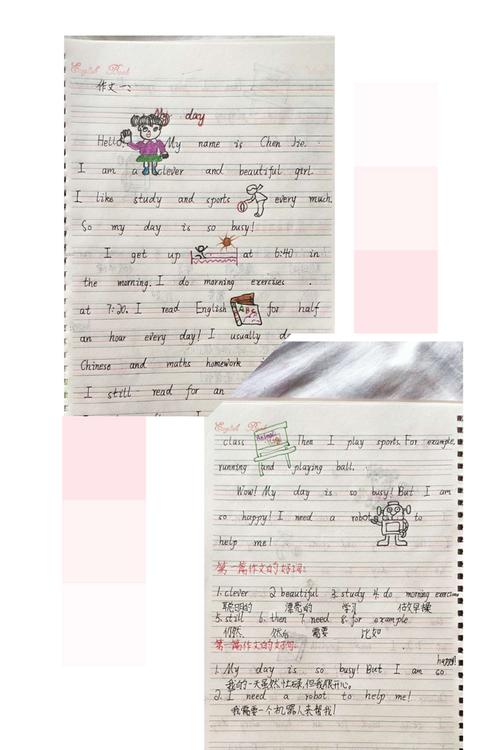 English Book
作文一:
My day
Hello! My name is Chen Jie.
I am a clever and beautiful girl.
I like study and sports every much.
So my day is so busy!
I get up at 6:40 in
the morning. I do morning exercises
at 7:20. I read English for half
ABC
an hour every day! I usually do
Chinese and maths homework
I still read for an
English Book
class Then I play sports. For example,
running and playing ball.
Wow! My day is so busy! But I am
so happy! I need a robot to
help me!
第一篇作文的好词:
1. clever 2. beautiful 3. study 4. do morning exercise
聪明的 漂亮的 学习 做早操
5. still 6. then 7. need 8. for example
仍然 然后 需要 比如
第一篇作文的好句:
1. My day is so busy! But I am so happy!
我的一天虽然忙碌,但我很开心。
2. I need a robot to help me!
我需要一个机器人来帮我!